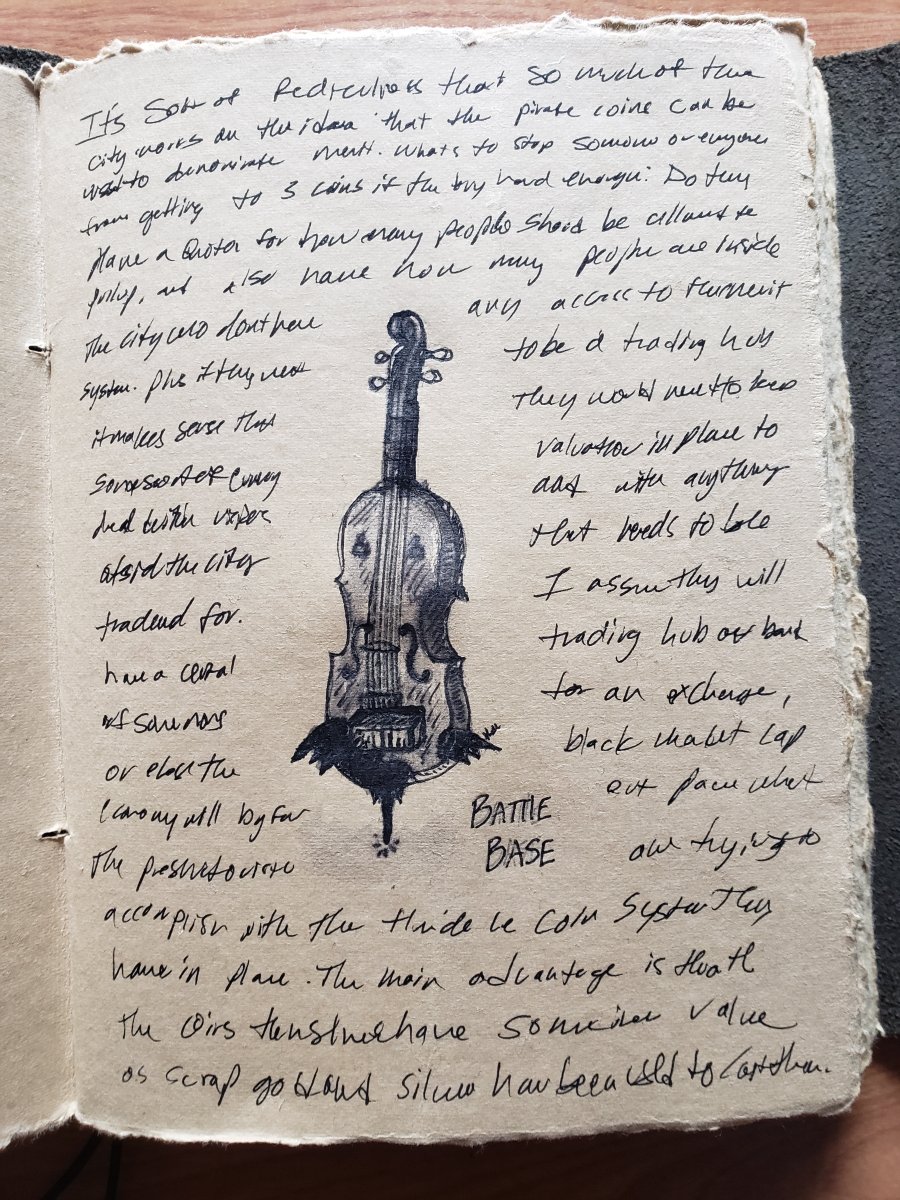 It's Sort of Rediculness that so much of this
city works on the idea that the pirate coins can be
used to denominate merit. whats to stop someone or enyone
from getting to 3 coins if the try hard enough? Do they
Have a Quota for how many people should be allowed to
and also have how many people are inside
The city who dont have any access to
system. Plus if they want to be a trading hub
it makes sense that They would need to keep
some sort of valuation in place to
with anything
outside the city that needs to be
traded for. I assume they will
have a central trading hub or bank
of some sors for an exchange,
or else the black market
economy will by far out pace what
BATTLE
BASE
The are trying to
accomplish with the coin System they
have in place. The main advantage is that
the coins have some value
as scrap gold and silver have been used to cast them.